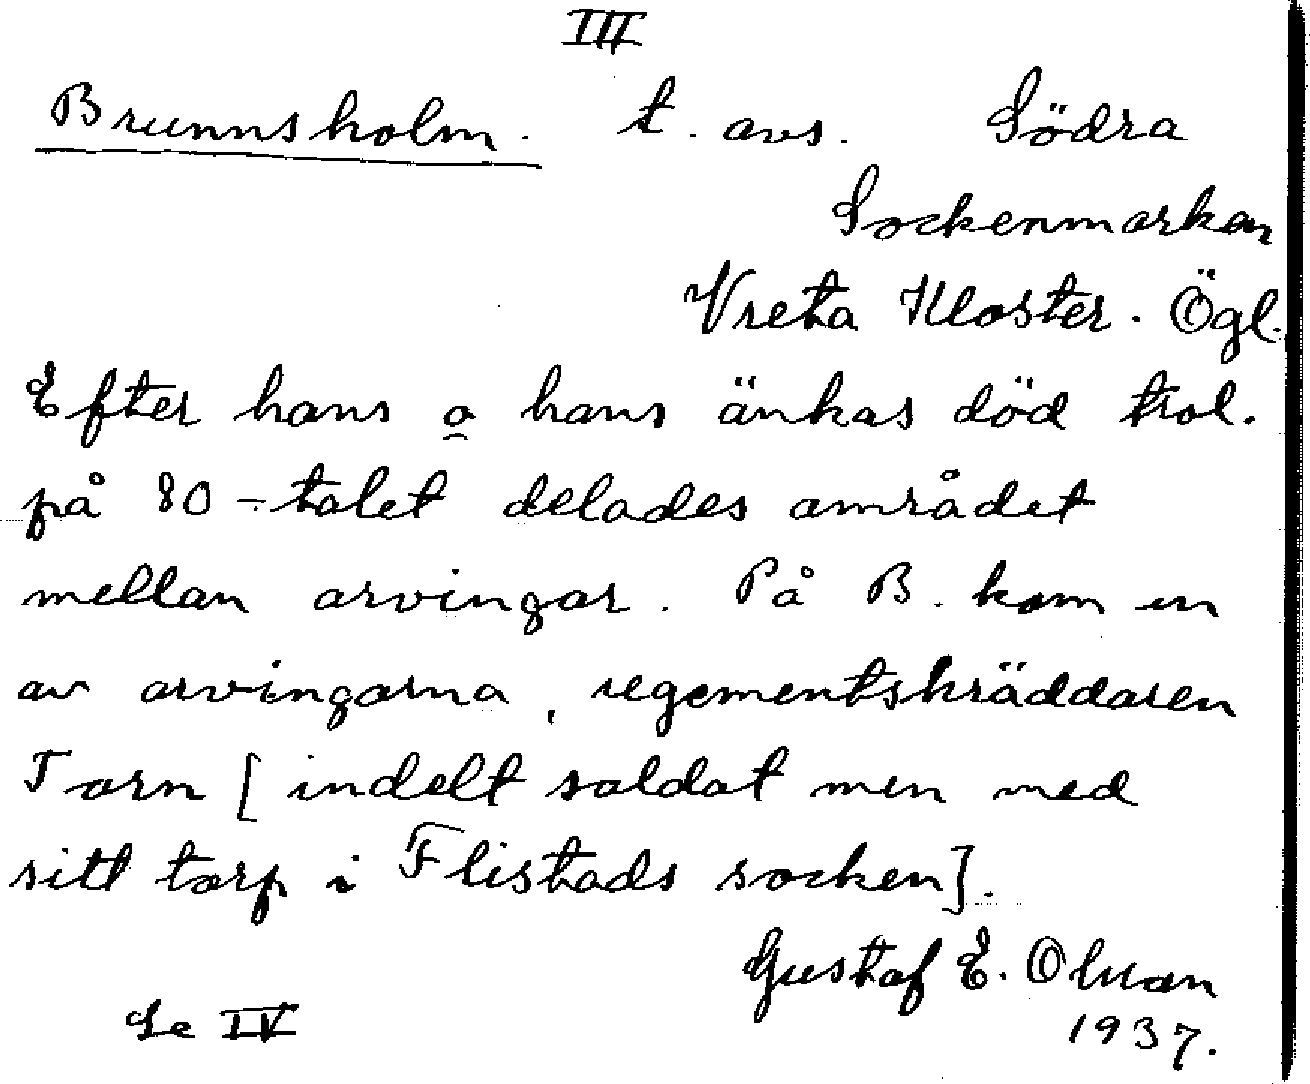 III
Brunnsholm. t. avs. Södra
Sockenmarken
Vreta Kloster. Ögl.
Efter hans o hans änkas död trol.
på 80-talet delades området
mellan arvingar. På B. kom en
av arvingarna, regementskräddaren
Torn [indelt soldat men med
sitt torp i Flistads socken].
Gustaf E. Olsson
Se IV
1937.